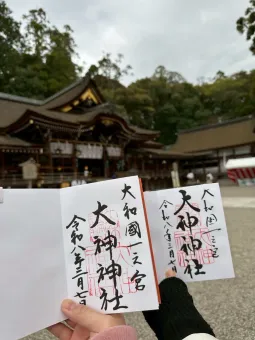 大和國一之宮
大神神社
令和八年三月七日
大和國一之宮
大神神社
令和八年三月七日